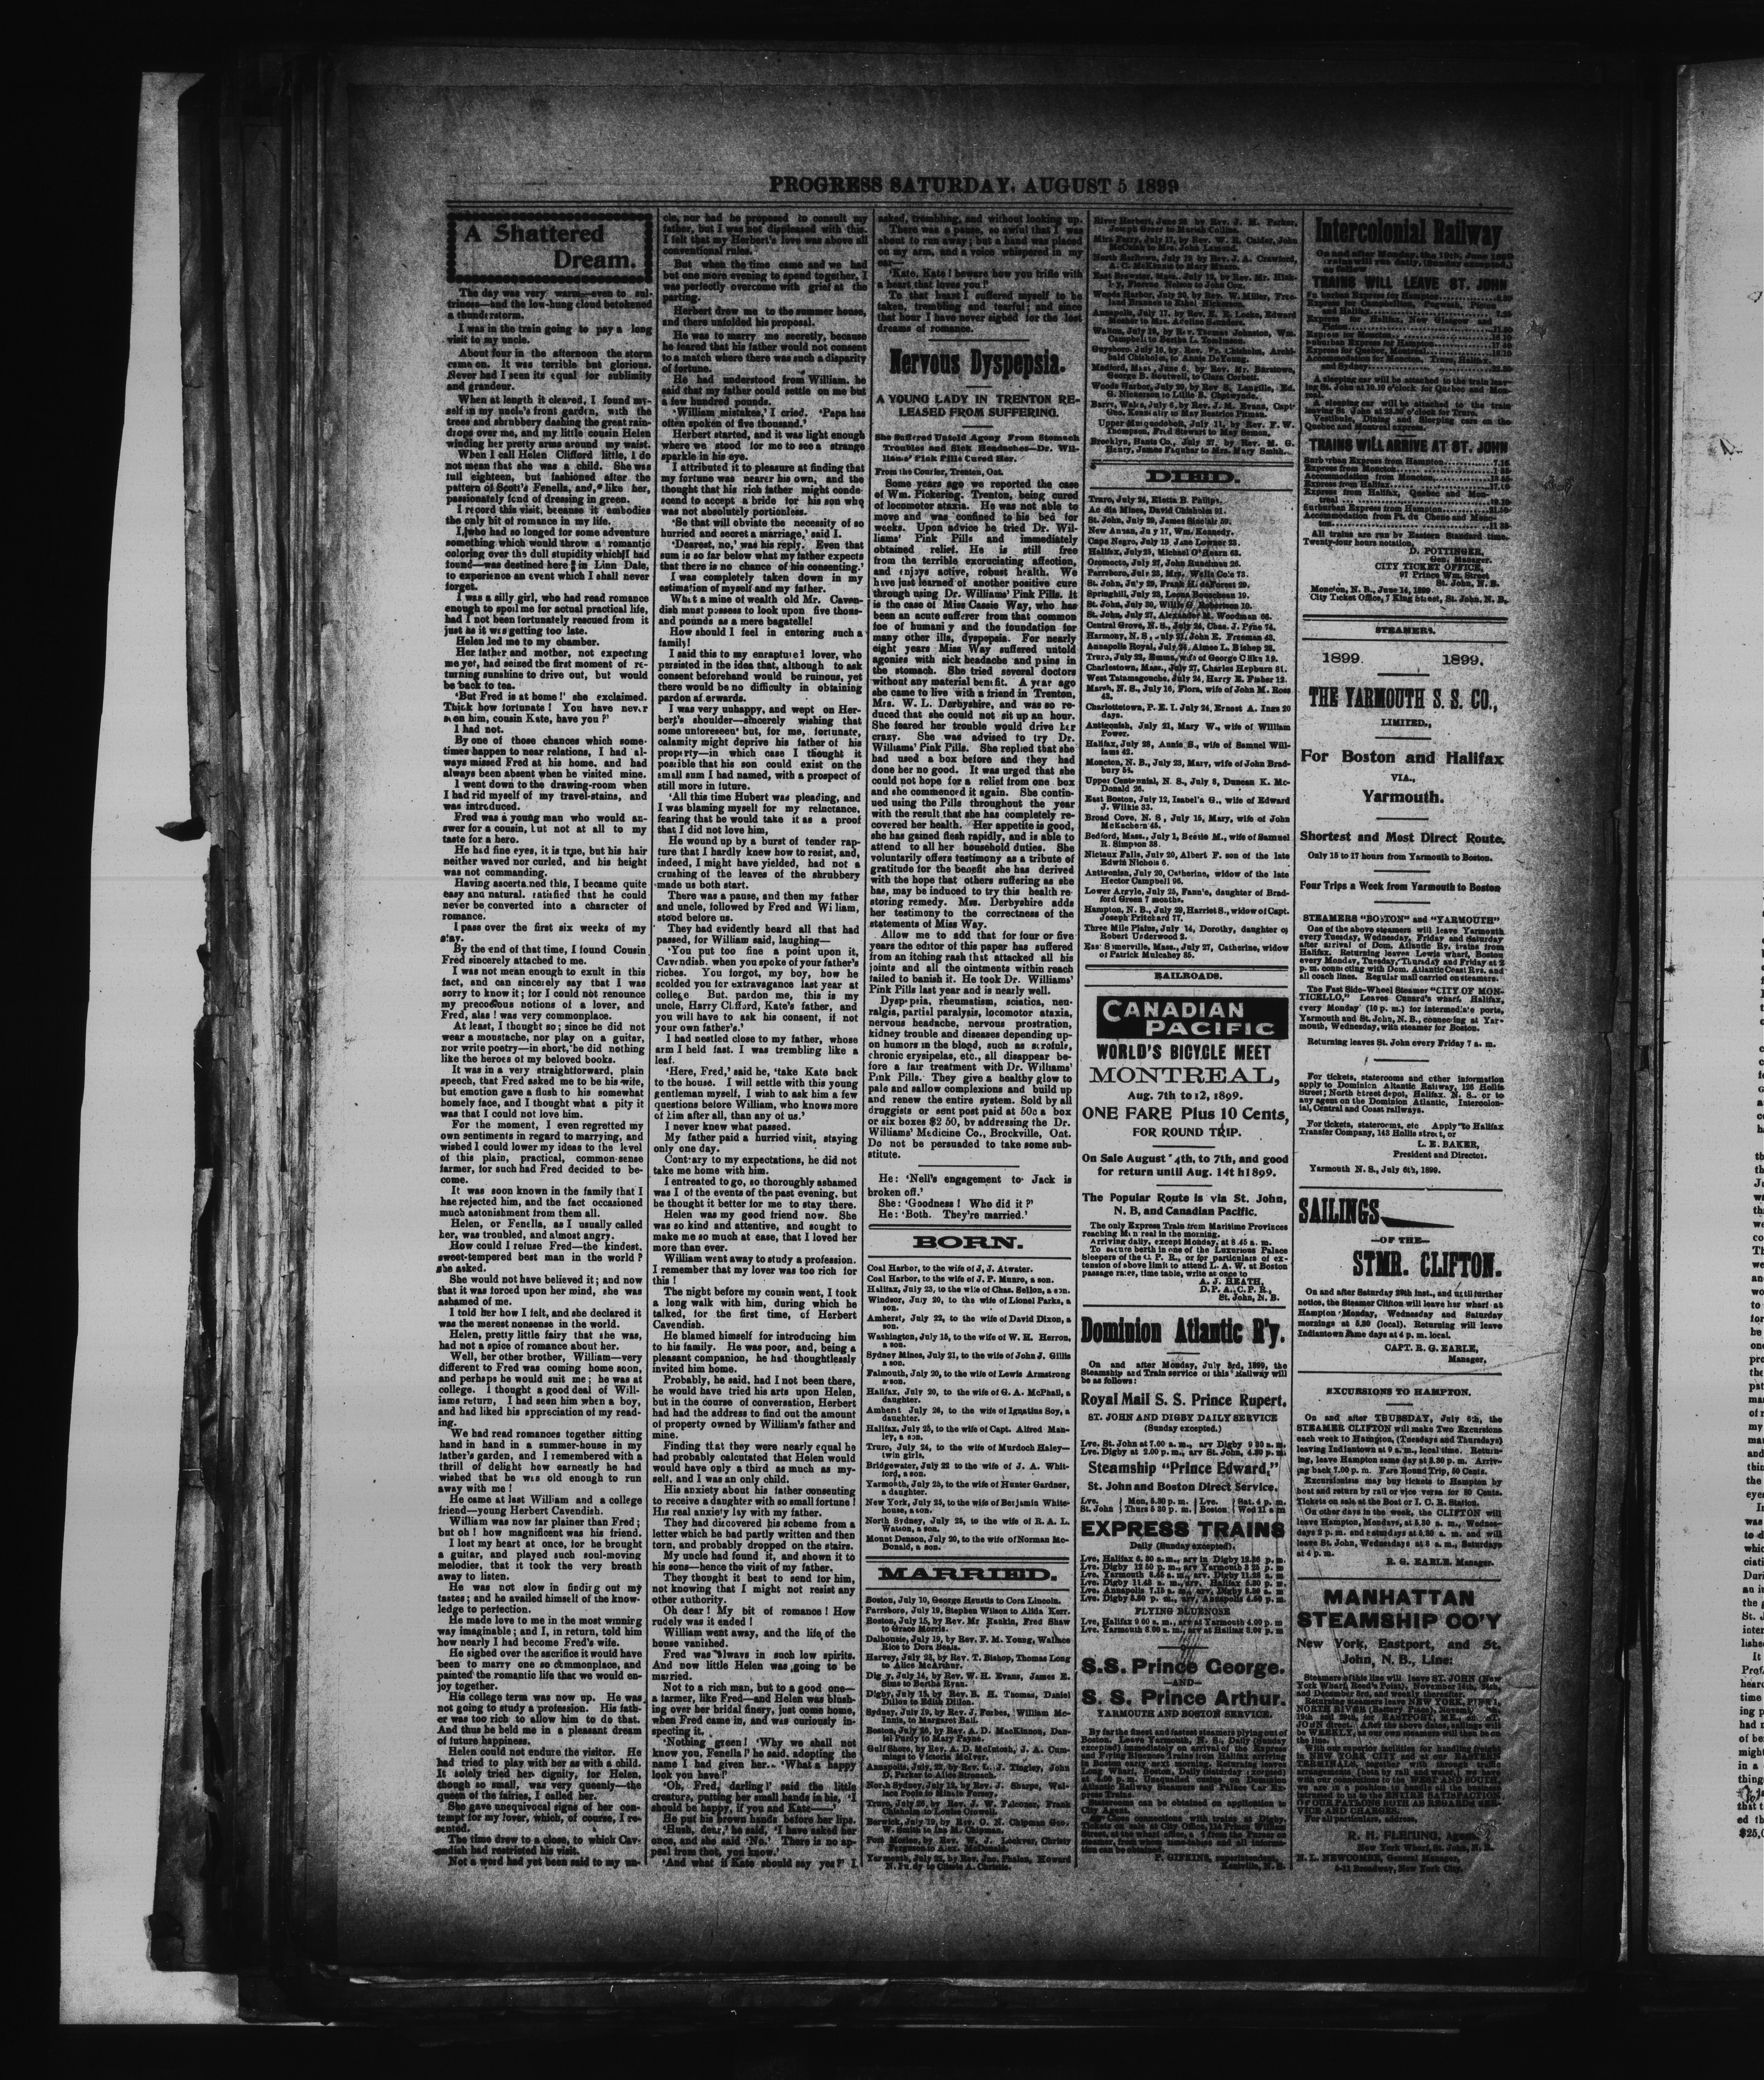 PROGRESS SATURDAY, AUGUST 5 1899
A Shattered
Dream.
The day was very warm—even to sul-
triness—and the low-hung cloud betokened
a thunderstorm.
I was in the train going to pay a long
visit to my uncle.
About four in the afternoon the storm
came on. It was terrible but glorious.
Never had I seen its equal for sublimity
and grandeur.
When at length it cleared, I found my-
self in my uncle's front garden, with the
trees and shrubbery dashing the great rain-
drops over me, and my little cousin Helen
winding her pretty arms around my waist.
When I call Helen Clifford little, I do
not mean that she was a child. She was
full eighteen, but fashioned after the
pattern of Scott's Fenella, and, like her,
passionately fond of dressing in green.
I record this visit, because it embodies
the only bit of romance in my life.
I, who had so longed for some adventure
something which would throw a romantic
coloring over the dull stupidity which I had
found—was destined here in Linn Dale,
to experience an event which I shall never
forget.
I was a silly girl, who had read romance
enough to spoil me for actual practical life,
had I not been fortunately rescued from it
just as it was getting too late.
Helen led me to my chamber.
Her father and mother, not expecting
me yet, had seized the first moment of re-
turning sunshine to drive out, but would
be back to tea.
'But Fred is at home!' she exclaimed.
Thick how fortunate! You have never
seen him, cousin Kate, have you?'
I had not.
By one of those chances which some-
times happen to near relations, I had al-
ways missed Fred at his home, and had
always been absent when he visited mine.
I went down to the drawing-room when
I had rid myself of my travel-stains, and
was introduced.
Fred was a young man who would an-
swer for a cousin, but not at all to my
taste for a hero.
He had fine eyes, it is true, but his hair
neither waved nor curled, and his height
was not commanding.
Having ascertained this, I became quite
easy and natural, satisfied that he could
never be converted into a character of
romance.
I pass over the first six weeks of my
stay.
By the end of that time, I found Cousin
Fred sincerely attached to me.
I was not mean enough to exult in this
fact, and can sincerely say that I was
sorry to know it; for I could not renounce
my precodious notions of a lover, and
Fred, alas! was very commonplace.
At least, I thought so; since he did not
wear a moustache, nor play on a guitar,
nor write poetry—in short, he did nothing
like the heroes of my beloved books.
It was in a very straightforward, plain
speech, that Fred asked me to be his wife,
but emotion gave a flush to his somewhat
homely face, and I thought what a pity it
was that I could not love him.
For the moment, I even regretted my
own sentiments in regard to marrying, and
wished I could lower my ideas to the level
of this plain, practical, common-sense
farmer, for such had Fred decided to be-
come.
It was soon known in the family that I
has rejected him, and the fact occasioned
much astonishment from them all.
Helen, or Fenella, as I usually called
her, was troubled, and almost angry.
How could I refuse Fred—the kindest,
sweet-tempered best man in the world?
she asked.
She would not have believed it; and now
that it was forced upon her mind, she was
ashamed of me.
I told her how I felt, and she declared it
was the merest nonsense in the world.
Helen, pretty little fairy that she was,
had not a spice of romance about her.
Well, her other brother, William—very
different to Fred was coming home soon,
and perhaps he would suit me; he was at
college. I thought a good deal of Will-
iams return, I had seen him when a boy,
and had liked his appreciation of my read-
ing.
We had read romances together sitting
hand in hand in a summer-house in my
father's garden, and I remembered with a
thrill of delight how earnestly he had
wished that he was old enough to run
away with me!
He came at last William and a college
friend—young Herbert Cavendish.
William was now far plainer than Fred;
but oh! how magnificent was his friend.
I lost my heart at once, for he brought
a guitar, and played such soul-moving
melodies, that it took my very breath
away to listen.
He was not slow in finding out my
tastes; and he availed himself of the know-
ledge to perfection.
He made love to me in the most winning
way imaginable; and I, in return, told him
how nearly I had become Fred's wife.
He sighed over the sacrifice it would have
been to marry one so commonplace, and
painted the romantic life that we would en-
joy together.
His college term was now up. He was
not going to study a profession. His fath-
er was too rich to allow him to do that.
And thus he held me in a pleasant dream
of future happiness.
Helen could not endure the visitor. He
had tried to play with her as with a child.
It solely tried her dignity, for Helen,
though so small, was very queenly—the
queen of the fairies, I called her.
She gave unequivocal signs of her con-
tempt for my lover, which, of course, I re-
sented.
The time drew to a close, to which Cav-
endish had restricted his visit.
Not a word had yet been said to my un-
cle, nor had he proposed to consult my
father, but I was not displeased with this.
I felt that my Herbert's love was above all
conventional rules.
But when the time came and we had
but one more evening to spend together, I
was perfectly overcome with grief at the
parting.
Herbert drew me to the summer house,
and there unfolded his proposal.
He was to marry me secretly, because
he feared that his father would not consent
to a match where there was such a disparity
of fortune.
He had understood from William, he
said that my father could settle on me but
a few hundred pounds.
'William mistakes,' I cried. 'Papa has
often spoken of five thousand.'
Herbert started, and it was light enough
where we stood for me to see a strange
sparkle in his eye.
I attributed it to pleasure at finding that
my fortune was nearer his own, and the
thought that his rich father might conde-
scend to accept a bride for his son who
was not absolutely portionless.
'So that will obviate the necessity of so
hurried and secret a marriage,' said I.
'Dearest, no,' was his reply. Even that
sum is so far below what my father expects
that there is no chance of his consenting.'
I was completely taken down in my
estimation of myself and my father.
What a mine of wealth old Mr. Caven-
dish must possess to look upon five thous-
and pounds as a mere bagatelle!
How should I feel in entering such a
family!
I said this to my enraptured lover, who
persisted in the idea that, although to ask
consent beforehand would be ruinous, yet
there would be no difficulty in obtaining
pardon afterwards.
I was very unhappy, and wept on Her-
bert's shoulder—sincerely wishing that
some unforeseen but, for me, fortunate,
calamity might deprive his father of his
property—in which case I thought it
possible that his son could exist on the
small sum I had named, with a prospect of
still more in future.
'All this time Hubert was pleading, and
I was blaming myself for my reluctance,
fearing that he would take it as a proof
that I did not love him,
He wound up by a burst of tender rap-
ture that I hardly knew how to resist, and,
indeed, I might have yielded, had not a
crushing of the leaves of the shrubbery
made us both start.
There was a pause, and then my father
and uncle, followed by Fred and William,
stood before us.
They had evidently heard all that had
passed, for William said, laughing—
'You put too fine a point upon it,
Cavendish, when you spoke of your father's
riches. You forgot, my boy, how he
scolded you for extravagance last year at
college But, pardon me, this is my
uncle, Harry Clifford, Kate's father, and
you will have to ask his consent, if not
your own father's.'
I had nestled close to my father, whose
arm I held fast. I was trembling like a
leaf.
'Here, Fred,' said he, 'take Kate back
to the house. I will settle with this young
gentleman myself, I wish to ask him a few
questions before William, who knows more
of him after all, than any of us.'
I never knew what passed.
My father paid a hurried visit, staying
only one day.
Contrary to my expectations, he did not
take me home with him.
I entreated to go, so thoroughly ashamed
was I of the events of the past evening, but
he thought it better for me to stay there.
Helen was my good friend now. She
was so kind and attentive, and sought to
make me so much at ease, that I loved her
more than ever.
William went away to study a profession.
I remember that my lover was too rich for
this!
The night before my cousin went, I took
a long walk with him, during which he
talked, for the first time, of Herbert
Cavendish.
He blamed himself for introducing him
to his family. He was poor, and, being a
pleasant companion, he had thoughtlessly
invited him home.
Probably, he said, had I not been there,
he would have tried his arts upon Helen,
but in the course of conversation, Herbert
had had the address to find out the amount
of property owned by William's father and
mine.
Finding that they were nearly equal he
had probably calculated that Helen would
would have only a third as much as my-
self, and I was an only child.
His anxiety about his father consenting
to receive a daughter with so small fortune!
His real anxiety lay with my father.
They had discovered his scheme from a
letter which he had partly written and then
torn, and probably dropped on the stairs.
My uncle had found it, and shown it to
his sons—hence the visit of my father.
They thought it best to send for him,
not knowing that I might not resist any
other authority.
Oh dear! My bit of romance! How
rudely was it ended!
William went away, and the life of the
house vanished.
Fred was always in such low spirits.
And now little Helen was going to be
married.
Not to a rich man, but to a good one—
a farmer, like Fred—and Helen was blush-
ing over her bridal finery, just come home,
when Fred came in, and was curiously in-
specting it.
'Nothing green! 'Why we shall not
know you, Fenella!' he said, adopting the
name I had given her. 'What a happy
look you have!'
'Oh, Fred, darling!' said the little
creature, putting her small hands in his, 'I
should be happy, if you and Kate——'
He put his brown hands before her lips.
'Hush, dear,' he said, 'I have asked her
once, and she said 'No.' There is no ap-
peal from that, you know.'
'And what if Kate should say yes?' I
asked, trembling, and without looking up.
There was a pause, so awful that I was
about to run away; but a hand was placed
on my arm, and a voice whispered in my
ear—
'Kate, Kate! beware how you trifle with
a heart that loves you!'
To that heart I suffered myself to be
taken, trembling and tearful; and since
that hour I have never sighed for the lost
dreams of romance.
Nervous Dyspepsia.
A YOUNG LADY IN TRENTON RE-
LEASED FROM SUFFERING.
She Suffered Untold Agony From Stomach
Troubles and Sick Headaches—Dr. Wil-
liams' Pink Pills Cured Her.
From the Courier, Trenton, Ont.
Some years ago we reported the case
of Wm. Pickering, Trenton, being cured
of locomotor ataxia. He was not able to
move and was confined to his bed for
weeks. Upon advice he tried Dr. Wil-
liams' Pink Pills and immediately
obtained relief. He is still free
from the terrible excruciating affection,
and enjoys active, robust health. We
have just learned of another positive cure
through using Dr. Williams' Pink Pills. It
is the case of Miss Cassie Way, who has
been an acute sufferer from that common
foe of humanity and the foundation for
many other ills, dyspepsia. For nearly
eight years Miss Way suffered untold
agonies with sick headache and pains in
the stomach. She tried several doctors
without any material benefit. A year ago
she came to live with a friend in Trenton,
Mrs. W. L. Derbyshire, and was so re-
duced that she could not sit up an hour.
She feared her trouble would drive her
crazy. She was advised to try Dr.
Williams' Pink Pills. She replied that she
had used a box before and they had
done her no good. It was urged that she
could not hope for a relief from one box
and she commenced it again. She contin-
ued using the Pills throughout the year
with the result that she has completely re-
covered her health. Her appetite is good,
she has gained flesh rapidly, and is able to
attend to all her household duties. She
voluntarily offers testimony as a tribute of
gratitude for the benefit she has derived
with the hope that others suffering as she
has, may be induced to try this health re-
storing remedy. Mrs. Derbyshire adds
her testimony to the correctness of the
statements of Miss Way.
Allow me to add that for four or five
years the editor of this paper has suffered
from an itching rash that attacked all his
joints and all the ointments within reach
failed to banish it. He took Dr. Williams'
Pink Pills last year and is nearly well.
Dyspepsia, rheumatism, sciatica, neu-
ralgia, partial paralysis, locomotor ataxia,
nervous headache, nervous prostration,
kidney trouble and diseases depending up-
on humors in the blood, such as scrofula,
chronic erysipelas, etc., all disappear be-
fore a fair treatment with Dr. Williams'
Pink Pills. They give a healthy glow to
pale and sallow complexions and build up
and renew the entire system. Sold by all
druggists or sent post paid at 50c a box
or six boxes $2 50, by addressing the Dr.
Williams' Medicine Co., Brockville, Ont.
Do not be persuaded to take some sub-
stitute.
He: 'Nell's engagement to Jack is
broken off.'
She: 'Goodness! Who did it?'
He: 'Both. They're married.'
BORN.
Coal Harbor, to the wife of J. J. Atwater.
Coal Harbor, to the wife of J. P. Munro, a son.
Halifax, July 23, to the wife of Chas. Sellon, a son.
Windsor, July 20, to the wife of Lionel Parks, a
son.
Amherst, July 22, to the wife of David Dixon, a
son.
Washington, July 15, to the wife of W. H. Herron,
a son.
Sydney Mines, July 21, to the wife of John J. Gillis
a son.
Falmouth, July 20, to the wife of Lewis Armstrong
a son.
Halifax, July 20, to the wife of G. A. McPhail, a
daughter.
Amherst July 26, to the wife of Ignatius Soy, a
daughter.
Halifax, July 25, to the wife of Capt. Alfred Man-
ley, a son.
Truro, July 24, to the wife of Murdoch Haley—
twin girls.
Bridgewater, July 22 to the wife of J. A. Whit-
ford, a son.
Yarmouth, July 25, to the wife of Hunter Gardner,
a daughter.
New York, July 25, to the wife of Benjamin White-
house, a son.
North Sydney, July 25, to the wife of R. A. L.
Watson, a son.
Mount Denson, July 20, to the wife of Norman Mc-
Donald, a son.
MARRIED.
Boston, July 10, George Heustis to Cora Lincoln.
Parrsboro, July 19, Stephen Wilson to Alida Kerr.
Boston, July 15, by Rev. Mr Rankin, Fred Shaw
to Grace Morris.
Dalhousie, July 19, by Rev. F. M. Young, Wallace
Rice to Dora Beals.
Harvey, July 22, by Rev. T. Bishop, Thomas Long
to Alice McArthur.
Digby, July 14, by Rev. W. H. Evans, James E.
Sims to Bertha Ryan.
Digby, July 15, by Rev. B. H. Thomas, Daniel
Dillon to Edith Dillen.
Sydney, July 19, by Rev. J. Forbes, William Mc-
Innis, to Margaret Ball.
Boston, July 26, by Rev. A. D. MacKinnon, Dan-
iel Purdy to Mary Payne.
Gulf Shore, by Rev. A. D. McIntosh, J. A. Cum-
mings to Victoria McIver.
Annapolis, July, 22, by Rev. L. J. Tingley, John
D. Parker to Alice Stronach.
North Sydney, July 12, by Rev. J. Sharpe, Wal-
lace Poole to Minnie Forsey.
Truro, July 20, by Rev. J. W. Falconer, Frank
Chisholm to Louise Crowell.
Berwick, July 19, by Rev. O. N. Chipman Geo.
W. Smith to Ina M. Chipman.
Port Morien, by Rev. W. J. Lockyer, Christy
Ferguson to Alex. McDonald.
Yarmouth, July 22, by Rev. Jno. Phelan, Howard
N. Purdy to Celeste A. Christie.
River Herbert, June 28 by Rev. J. M. Parker,
Joseph Greer to Mariah Collins.
Mira Ferry, July 17, by Rev. W. R. Calder, John
McCuish to Mrs. John Lamond.
North Earltown, July 19 by Rev. J. A. Crawford,
A. C. McKenzie to Mary Munro.
East Brewster, Mass., July 12, by Rev. Mr. Hink-
ly, Florence Nelson to John Cox.
Woods Harbor, July 20, by Rev. W. Miller, Free-
land Brannen to Ethel Nickerson.
Annapolis, July 17, by Rev. E. E. Locke, Edward
Mosher to Mrs. Adeline Saunders.
Walton, July 19, by Rev. Thomas Johnston, Wm.
Campbell to Bertha L. Tomlinson.
Guysboro, July 16, by Rev. Fr. Chisholm, Archi-
bald Chisholm, to Annie DeYoung.
Medford, Mass, June 6, by Rev. Mr. Barstowe,
George B. Boutwell, to Clara Corbett.
Woods Harbor, July 20, by Rev S. Langille, Ed.
G. Nickerson to Lillie B. Chetwynde.
Barre, Wales, July 6, by Rev. J. M. Evans, Capt
Geo. Kenealy to May Beatrice Pitman.
Upper Musquodoboit, July 11, by Rev. F. W.
Thompson, Fred Stewart to May Benton.
Brooklyn, Hants Co., July 27, by Rev. M. G.
Henry, James Faquhar to Mrs. Mary Smith.
DIED.
Truro, July 24, Eletta B. Philips.
Acadia Mines, David Chisholm 91.
St. John, July 29, James Sinclair 59.
New Annan, July 17, Wm. Kennedy.
Cape Negro, July 13, Jane Lowner 23.
Halifax, July 25, Michael O'Hearn 63.
Oromocto, July 27, John Rundman 26.
Parrsboro, July 23, Mrs. Wells Cole 73.
St. John, July 29, Frank H. deForest 29.
Springhill, July 23, Leona Bouschean 19.
St. John, July 30, Willie G. Robertson 10.
St. John, July 27, Alexander M. Woodman 66.
Central Grove, N. S., July 24, Chas. J. Pyne 74.
Harmony, N. S., July 21, John E. Freeman 43.
Annapolis Royal, July 24, Aimee L. Bishop 28.
Truro, July 22, Emma, wife of George Clike 19.
Charlestown, Mass., July 27, Charles Hepburn 81.
West Tatamagouche, July 24, Harry E. Fisher 12.
Marsh, N. S., July 16, Flora, wife of John M. Ross
43.
Charlottetown, P. E. I. July 24, Ernest A. Ings 20
days.
Antigonish, July 21, Mary W., wife of William
Power.
Halifax, July 28, Annie S., wife of Samuel Will-
iams 42.
Moncton, N. B., July 23, Mary, wife of John Brad-
bury 54.
Upper Centennial, N. S., July 8, Duncan K. Mc-
Donald 26.
East Boston, July 12, Isabel'a G., wife of Edward
J. Wilkie 33.
Broad Cove, N. S, July 15, Mary, wife of John
McEachern 45.
Bedford, Mass., July 1, Bessie M., wife of Samuel
R. Simpson 38.
Nictaux Falls, July 20, Albert F. son of the late
Edwin Nichols 6.
Antigonish, July 20, Catherine, widow of the late
Hector Campbell 96.
Lower Argyle, July 25, Fannie, daughter of Brad-
ford Green 7 months.
Hampton, N. B., July 29, Harriet S., widow of Capt.
Joseph Pritchard 77.
Three Mile Plains, July 14, Dorothy, daughter of
Robert Underwood 2.
East Somerville, Mass., July 27, Catherine, widow
of Patrick Mulcahey 85.
RAILROADS.
CANADIAN
PACIFIC
WORLD'S BICYCLE MEET
MONTREAL,
Aug. 7th to 12, 1899.
ONE FARE Plus 10 Cents,
FOR ROUND TRIP.
On Sale August 4th, to 7th, and good
for return until Aug. 14th 1899.
The Popular Route is via St. John,
N. B, and Canadian Pacific.
The only Express Train from Maritime Provinces
reaching Montreal in the morning.
Arriving daily, except Monday, at 8 45 a. m.
To secure berth in one of the Luxurious Palace
Sleepers of the C. P. R., or for particulars of ex-
tension of above limit to attend L. A. W. at Boston
passage rates, time table, write at once to
A. J. HEATH,
D. P. A., C. P. R.,
St. John, N. B.
Dominion Atlantic R'y.
On and after Monday, July 3rd, 1899, the
Steamship and Train service of this Railway will
be as follows:
Royal Mail S. S. Prince Rupert,
ST. JOHN AND DIGBY DAILY SERVICE
(Sunday excepted.)
Lve. St. John at 7.00 a. m., arv Digby 9 30 a. m.
Lve. Digby at 2.00 p. m., arv St. John, 4.30 p. m.
Steamship "Prince Edward,"
St. John and Boston Direct Service.
Lve. St. John Mon, 5.30 p. m. Thurs 5 30 p. m. Lve. Boston Sat. 4 p. m. Wed 11 a m
EXPRESS TRAINS
Daily (Sunday excepted).
Lve. Halifax 6. 30 a. m., arv in Digby 12.36 p. m.
Lve. Digby 12 50 p. m., arv Yarmouth 3 25 p. m.
Lve. Yarmouth 8.45 a. m., arv. Digby 11.28 a. m.
Lve. Digby 11.43 a. m., arv. Halifax 5.50 p. m.
Lve. Annapolis 7.15 a. m., arv. Digby 8.30 a. m.
Lve. Digby 3.30 p. m., arv. Annapolis 4.50 p. m.
FLYING BLUENOSE
Lve, Halifax 9 00 a. m., arv at Yarmouth 4.00 p. m
Lve. Yarmouth 8.00 a. m., arv at Halifax 3.00 p. m
S.S. Prince George.
—AND—
S. S. Prince Arthur.
YARMOUTH AND BOSTON SERVICE.
By far the finest and fastest steamers plying out of
Boston. Leave Yarmouth, N. S., Daily (Sunday
excepted) immediately on arrival of the Express
and Flying Bluenose Trains from Halifax arriving
in Boston early next morning. Returning leaves
Long Wharf, Boston, Daily (Saturday excepted)
at 4.00 p. m. Unequalled cusine on Dominion
Atlantic Railway Steamers and Palace Car Ex-
press Trains.
Staterooms can be obtained on application to
City Agent.
Close connections with trains at Digby.
Tickets on sale at City Office, 114 Prince William
Street, at the wharf office, and from the Purser on
steamer, from whom time-tables and all informa-
tion can be obtained.
P. GIFKINS, superintendent,
Kentville, N. S.
Intercolonial Railway
On and after Monday, the 19th, June 1899
trains will run daily, (Sunday excepted,)
as follow
TRAINS WILL LEAVE ST. JOHN
Suburban Express for Hampton
Express for Campbellton, Pugwash, Pictou
and Halifax
Express for Halifax, New Glasgow and
Pictou
Express for Moncton
Suburban Express for Hampton
Express for Quebec, Montreal
Accommodation for Moncton, Truro, Halifax
and Sydney
A sleeping car will be attached to the train leav-
ing St. John at 19.10 o'clock for Quebec and Mon-
treal.
A sleeping car will be attached to the train
leaving St. John at 22.30 o'clock for Truro.
Vestibule, Dining and Sleeping cars on the
Quebec and Montreal express.
TRAINS WILL ARRIVE AT ST. JOHN
Surburban Express from Hampton
Express from Moncton
Accommodation from Moncton
Express from Halifax
Express from Halifax, Quebec and Mon-
treal
Surburban Express from Hampton
Accommodation from Pt. du Chene and Monc-
ton
All trains are run by Eastern Standard time.
Twenty-four hours notation.
D. POTTINGER,
Gen. Manager.
CITY TICKET OFFICE,
97 Prince Wm. Street
St. John, N. B.
Moncton, N. B., June 14, 1899
City Ticket Office, 7 King Street, St. John, N. B.
STEAMERS.
1899. 1899.
THE YARMOUTH S. S. CO.,
LIMITED.,
For Boston and Halifax
VIA.,
Yarmouth.
Shortest and Most Direct Route.
Only 15 to 17 hours from Yarmouth to Boston.
Four Trips a Week from Yarmouth to Boston
STEAMERS "BOSTON" and "YARMOUTH"
One of the above steamers will leave Yarmouth
every Tuesday, Wednesday, Friday and Saturday
after arrival of Dom. Atlantic Ry. trains from
Halifax. Returning leaves Lewis wharf, Boston
every Monday, Tuesday, Thursday and Friday at 2
p. m. connecting with Dom. Atlantic Coast Rys. and
all coach lines. Regular mail carried on steamers.
The Fast Side-Wheel Steamer "CITY OF MON-
TICELLO," Leaves Cunard's wharf, Halifax,
every Monday (10 p. m.) for intermediate ports,
Yarmouth and St. John, N. B., connecting at Yar-
mouth, Wednesday, with steamer for Boston.
Returning leaves St. John every Friday 7 a. m.
For tickets, staterooms and other information
apply to Dominion Altantic Railway, 126 Hollis
Street; North Street depot, Halifax, N. S., or to
any agent on the Dominion Atlantic, Intercolon-
ial, Central and Coast railways.
For tickets, staterooms, etc Apply to Halifax
Transfer Company, 143 Hollis street, or
L. E. BAKER,
President and Director.
Yarmouth N. S., July 6th, 1899.
SAILINGS
—OF THE—
STMR. CLIFTON.
On and after Saturday 29th inst., and until further
notice, the Steamer Clifton will leave her wharf at
Hampton Monday, Wednesday and Saturday
mornings at 5.30 (local). Returning will leave
Indiantown same days at 4 p. m. local.
CAPT. R. G. EARLE,
Manager.
EXCURSIONS TO HAMPTON.
On and after THURSDAY, July 6th, the
STEAMER CLIFTON will make Two Excursions
each week to Hampton, (Tuesdays and Thursdays)
leaving Indiantown at 9 a. m., local time. Return-
ing, leave Hampton same day at 3.30 p. m. Arriv-
ing back 7.00 p. m. Fare Round Trip, 50 Cents.
Excursionists may buy tickets to Hampton by
boat and return by rail or vice versa for 80 Cents.
Tickets on sale at the Boat or I. C. R. Station.
On other days in the week, the CLIFTON will
leave Hampton, Mondays, at 5.30 a. m., Wednes-
days 2 p. m. and Saturdays at 5.30 a. m. and will
leave St. John, Wednesdays at 8 a. m., Saturdays
at 4 p. m.
R. G. EARLE, Manager.
MANHATTAN
STEAMSHIP CO'Y
New York, Eastport, and St.
John, N. B., Line:
Steamers of this line will leave ST. JOHN (New
York Wharf, Reed's Point), November 14th, 24th,
and December 3rd, and weekly thereafter.
Returning steamers leave NEW YORK, PIER 1,
NORTH RIVER (Battery Place), November 9th,
19th and 29th, for EASTPORT, ME., and ST.
JOHN direct. After the above dates, sailings will
be WEEKLY, as our own steamers will then be on
the line.
With our superior facilities for handling freight
in NEW YORK CITY and at our EASTERN
TERMINALS, together with through traffic
arrangements (both by rail and water), we have
with our connections to the WEST AND SOUTH,
we are in a position to handle all the business
intrusted to us to the ENTIRE SATISFACTION
OF OUR PATRONS BOTH AS REGARDS SER-
VICE AND CHARGES.
For all particulars, address,
R. H. FLEMING, Agent,
New York Wharf, St. John, N. B.
N. L. NEWCOMBE, General Manager,
5-11 Broadway, New York City.